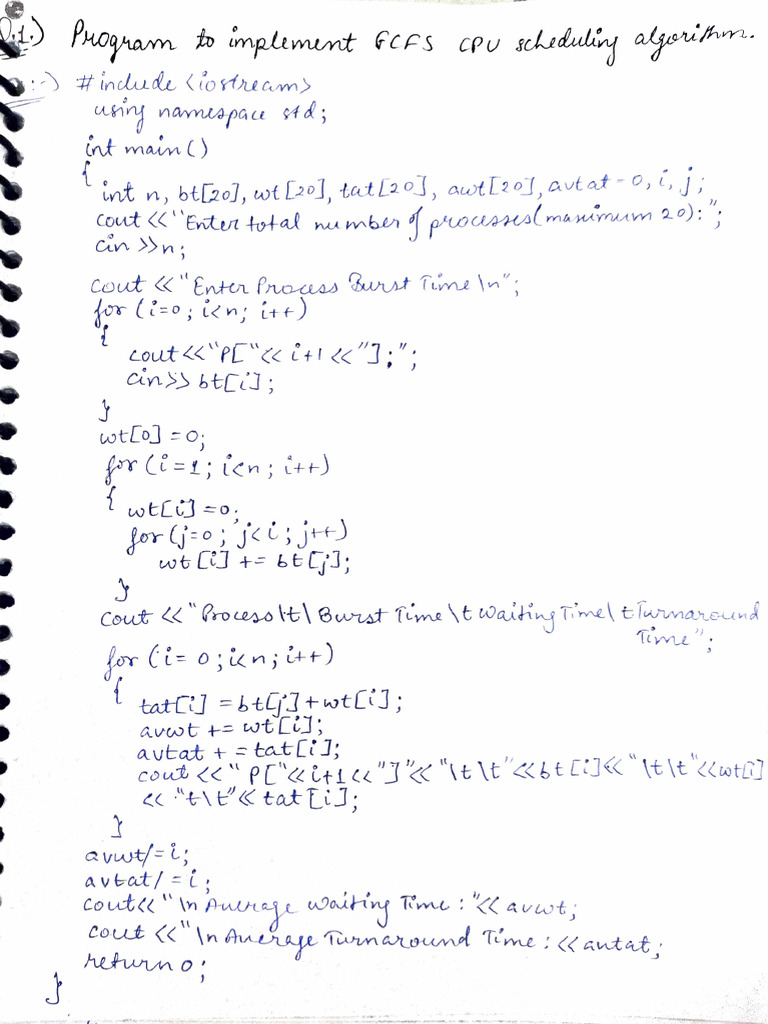 Q.1.) Program to implement FCFS CPU scheduling algorithm.
:-) #include <iostream>
using namespace std;
int main()
{
int n, bt[20], wt[20], tat[20], awt[20], avtat-0, i, j;
cout <<"Enter total number of processes(maximum 20):";
cin >>n;
cout <<"Enter Process Burst Time \n";
for (i=0; i<n; i++)
{
cout<<"P["<< i+1 <<"];";
cin>> bt[i];
}
wt[0] =0;
for (i=1; i<n; i++)
{ wt[i] =0;
for (j=0; j<i; j++)
wt[i] += bt[j];
}
cout <<"Process\t\ Burst Time\t Waiting Time\ tTurnaround
Time";
for (i= 0;i<n;i++)
{
tat[i] =bt[j]+wt[i];
avwt += wt[i];
avtat + =tat[i];
cout <<" P["<<i+1<<"]"<< "\t\t"<<bt[i]<<"\t\t"<<wt[i]
<< "t\t"<< tat[i];
}
avwt/=i;
avtat/ =i;
cout<<"\n Average Waiting Time : "<< avwt;
cout <<"\n Average Turnaround Time : << avtat;
return 0;
}